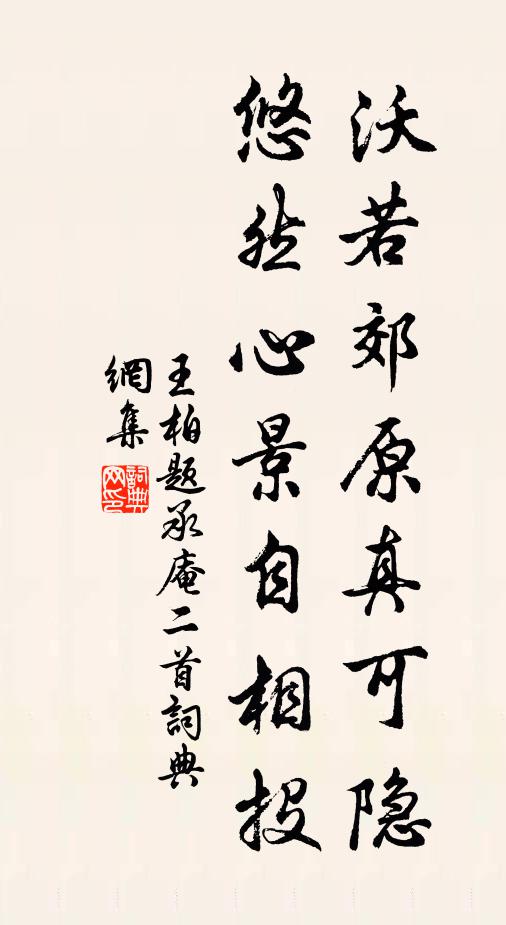 沃若郊原真可隐
悠然心景自相投
王柏题承庵二首詞典
網集
詞典
网印